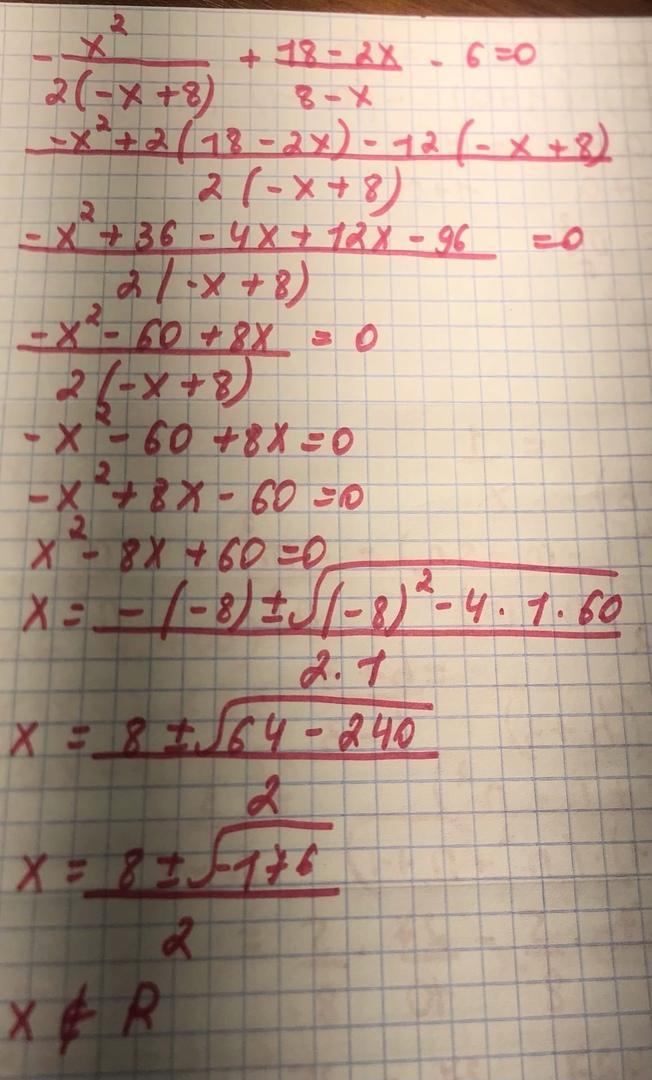 - x²/2(-x+8) + 18-2x/8-x - 6=0
-x²+2(18-2x)-12(-x+8)/2(-x+8)
-x²+36-4x+12x-96/2(-x+8) =0
-x²-60+8x/2(-x+8) = 0
-x²-60+8x=0
-x²+8x-60=0
x²-8x+60=0
x = -(-8)±√(-8)²-4·1·60/2·1
x = 8±√64-240/2
x = 8±√-176/2
x ∉ R